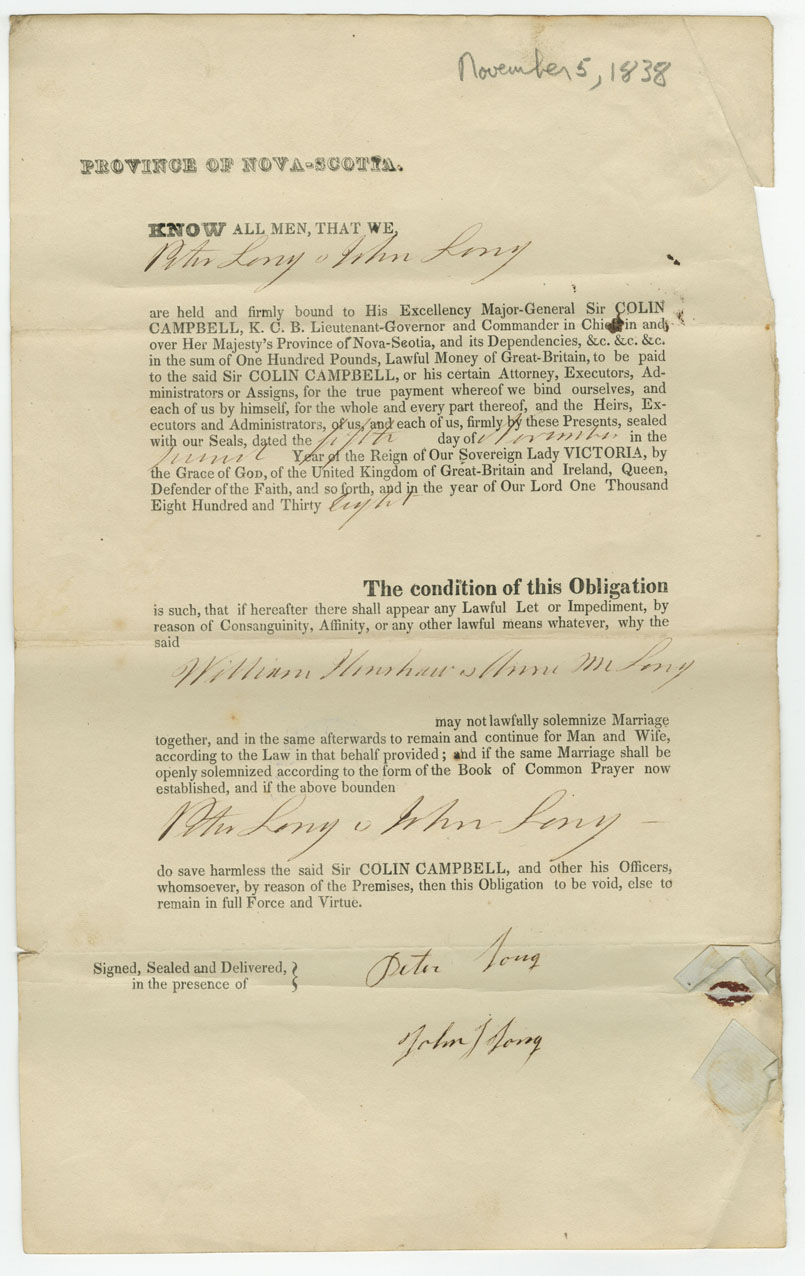 November 5, 1838
PROVINCE OF NOVA-SCOTIA.
KNOW ALL MEN, THAT WE,
Peter Long & John Long
are held and firmly bound to His Excellency Major-General Sir COLIN
CAMPBELL, K. C. B. Lieutenant-Governor and Commander in Chief in and
over Her Majesty's Province of Nova-Scotia, and its Dependencies, &c. &c. &c.
in the sum of One Hundred Pounds, Lawful Money of Great-Britain, to be paid
to the said Sir COLIN CAMPBELL, or his certain Attorney, Executors, Ad-
ministrators or Assigns, for the true payment whereof we bind ourselves, and
each of us by himself, for the whole and every part thereof, and the Heirs, Ex-
ecutors and Administrators, of us, and each of us, firmly by these Presents, sealed
with our Seals, dated the fifth day of November in the
Year of the Reign of Our Sovereign Lady VICTORIA, by
the Grace of GOD, of the United Kingdom of Great-Britain and Ireland, Queen,
Defender of the Faith, and so forth, and in the year of Our Lord One Thousand
Eight Hundred and Thirty eight
The condition of this Obligation
is such, that if hereafter there shall appear any Lawful Let or Impediment, by
reason of Consanguinity, Affinity, or any other lawful means whatever, why the
said
William Henshaw & Anne M Long
may not lawfully solemnize Marriage
together, and in the same afterwards to remain and continue for Man and Wife,
according to the Law in that behalf provided; and if the same Marriage shall be
openly solemnized according to the form of the Book of Common Prayer now
established, and if the above bounden
Peter Long & John Long
do save harmless the said Sir COLIN CAMPBELL, and other his Officers,
whomsoever, by reason of the Premises, then this Obligation to be void, else to
remain in full Force and Virtue.
Signed, Sealed and Delivered,
in the presence of
Peter Long
John Long